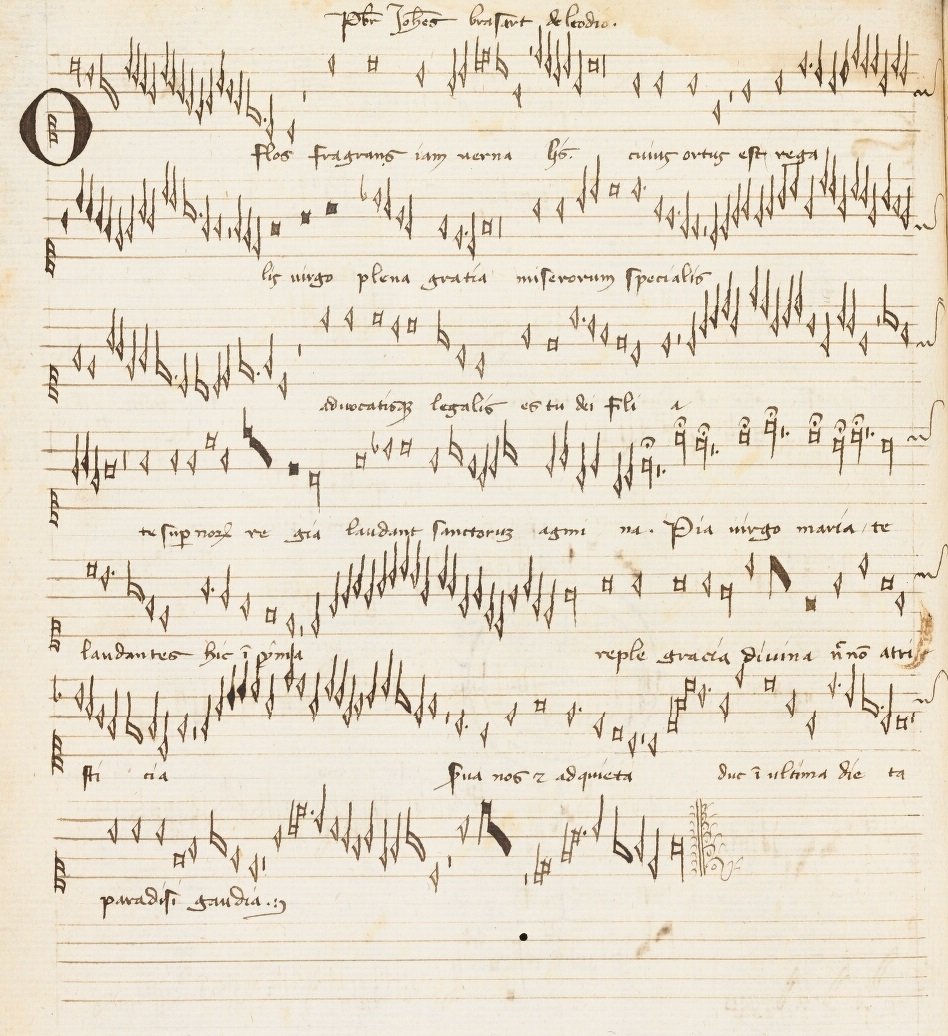 Pbr Johes brasart de leodio.
O flos fragrans iam verna lis. cuius ortus est rega
lis virgo plena gratia miserorum specialis
advocatisque legalis es tu dei fili a
te supernorum re gia laudant sanctorum agmi na. Pia virgo maria te
laudantes hic i
reple gracia divina atri
sti cia nos adquieta duc i ultima die ta
paradisi gaudia.